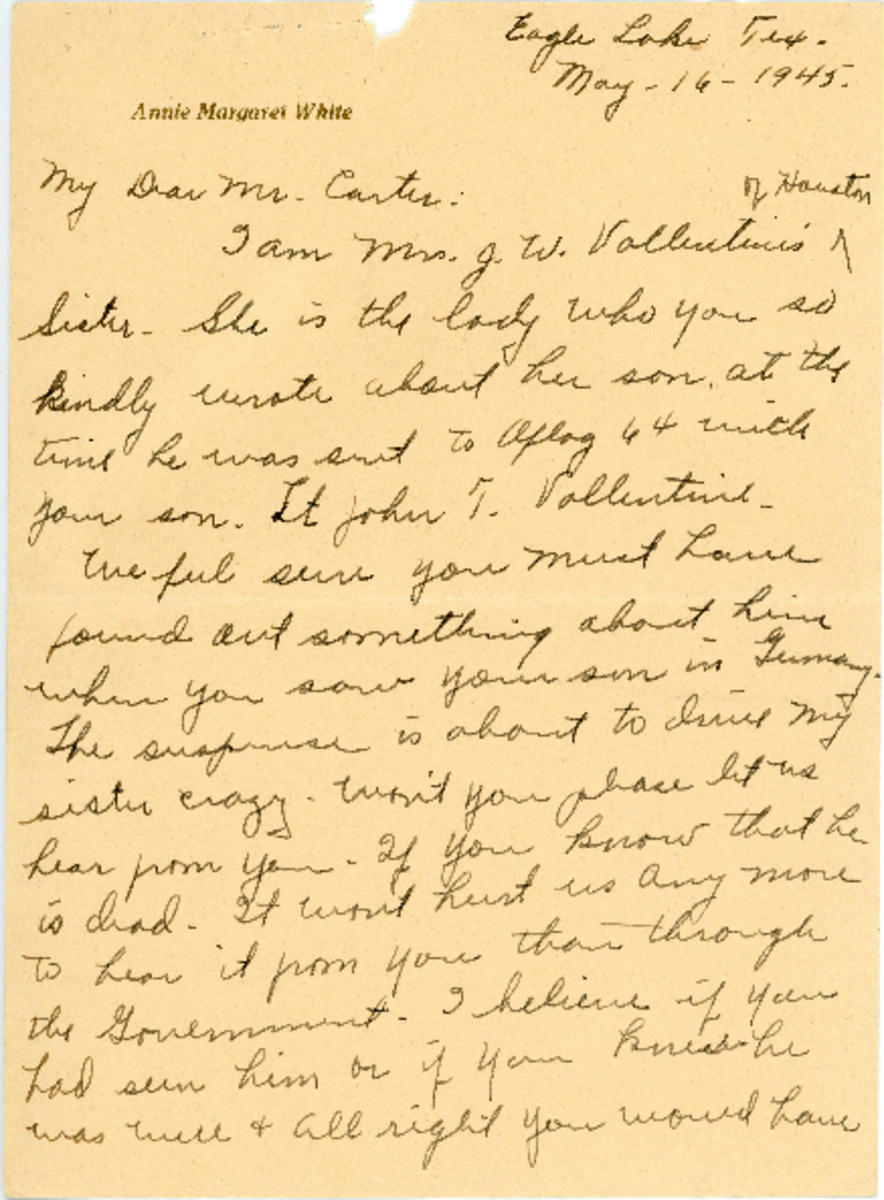 Eagle Lake Tex.
May - 16 - 1945.
Annie Margaret White
My Dear Mr. Carter:
of Houston
I am Mrs. J. W. Vallentine's ^
Sister - She is the lady who you so
kindly wrote about her son, at the
time he was sent to Oflag 64 with
your son. Lt John T. Vallentine -
We feel sure you must have
found out something about him
when you saw your son in Germany.
The suspense is about to drive my
sister crazy - Won't you please let us
hear from you - If you know that he
is dead - It won't hurt us any more
to hear it from you than through
the Government - I believe if you
had seen him or if you knew he
was well + all right you would have